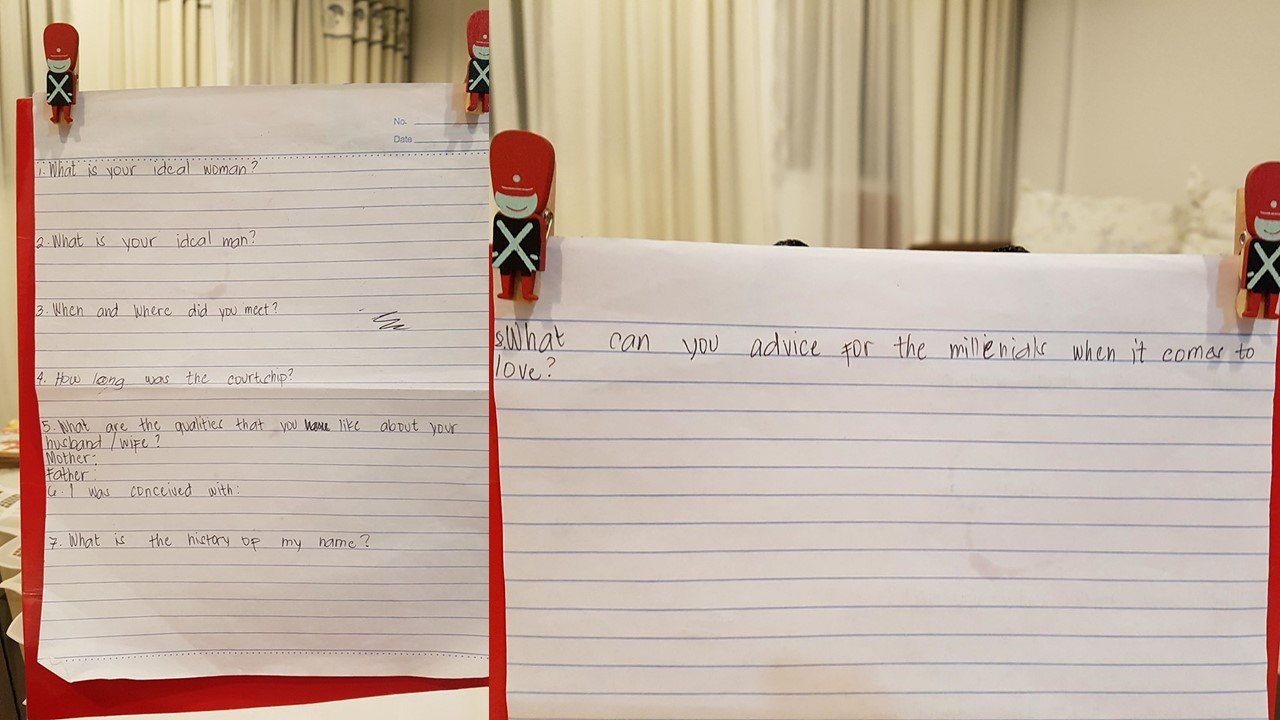 No.
Date
1. What is your ideal woman?
2. What is your ideal man?
3. When and where did you meet?
4. How long was the courtship?
5. What are the qualities that you like about your
husband / wife?
Mother:
Father:
6. I was conceived with:
7. What is the history of my name?
8. What can you advice for the millienials when it comes to
love?